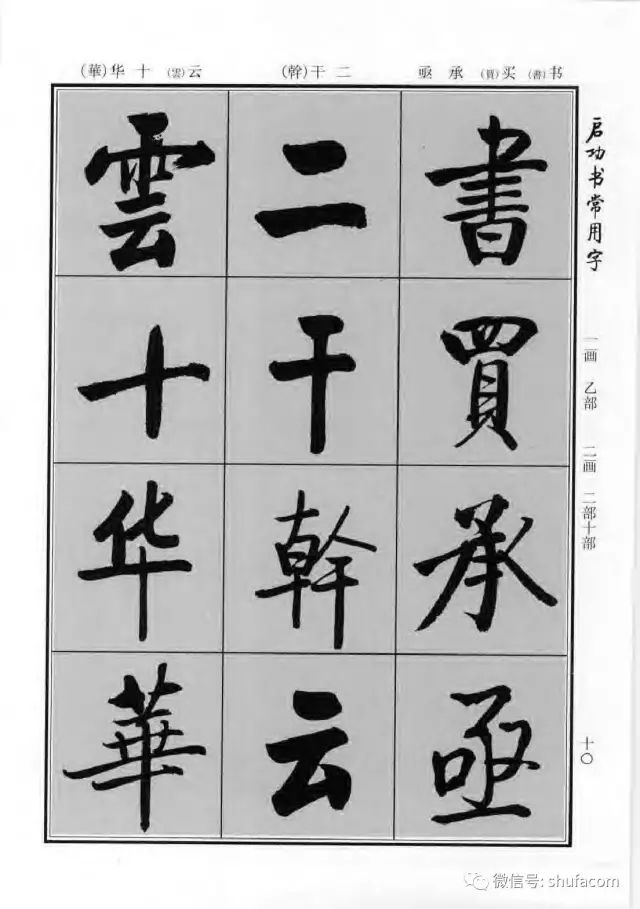 书(書) 买(買) 承 亟 二 干(幹) 云(雲) 十 华(華)
启功书常用字
一画 乙部 二画 二部十部
一〇
書
買
承
亟
二
干
幹
云
雲
十
华
華
微信号: shufacom